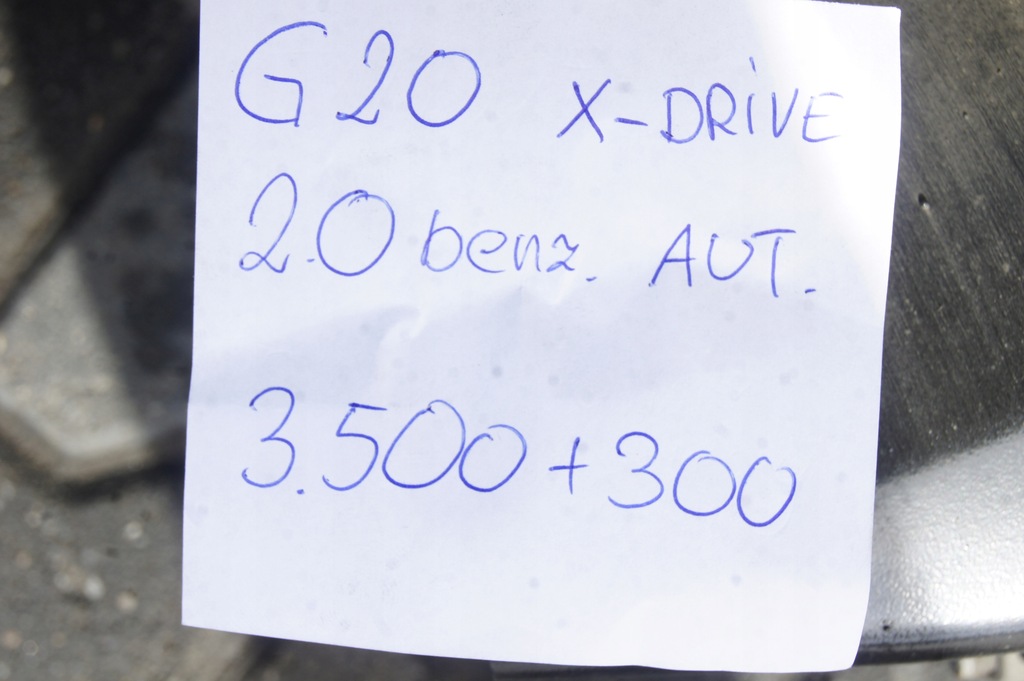 G20 X-DRiVE
2.0 benz. AUT.
3.500 + 300